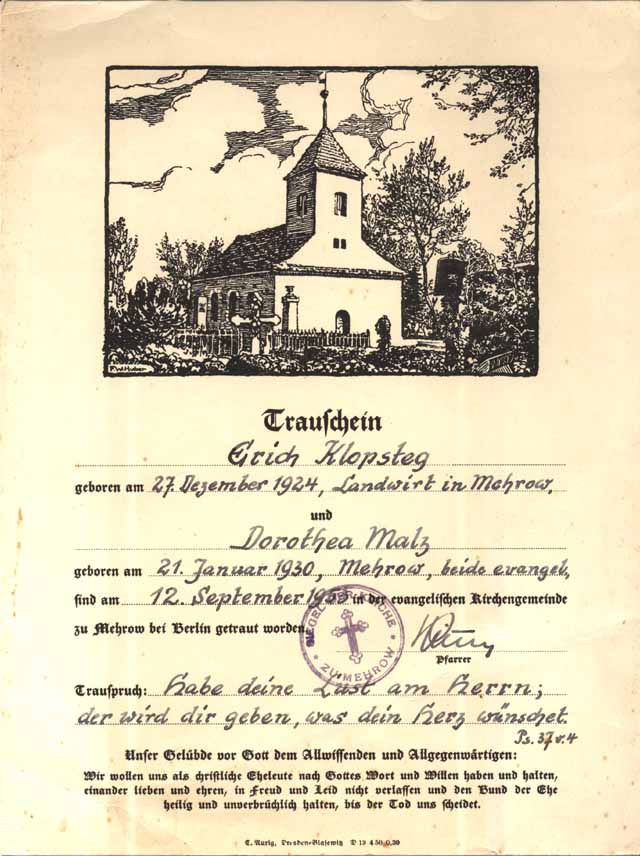 Trauschein
Erich Klopsteg
geboren am 27. Dezember 1924, Landwirt in Mehrow,
und
Dorothea Malz
geboren am 21. Januar 1930, Mehrow, beide evangel.,
sind am 12. September in der evangelischen Kirchengemeinde
zu Mehrow bei Berlin getraut worden.
SIEGEL DER KIRCHE
ZU MEHROW
Pfarrer
Trauspruch: Habe deine Lust am Herrn;
der wird dir geben, was dein Herz wünschet.
Ps. 37 v. 4
Unser Gelübde vor Gott dem Allwissenden und Allgegenwärtigen:
Wir wollen uns als christliche Eheleute nach Gottes Wort und Willen haben und halten,
einander lieben und ehren, in Freud und Leid nicht verlassen und den Bund der Ehe
heilig und unverbrüchlich halten, bis der Tod uns scheidet.
C. Aurig, Dresden-Blasewitz D 13 4.50 0,30